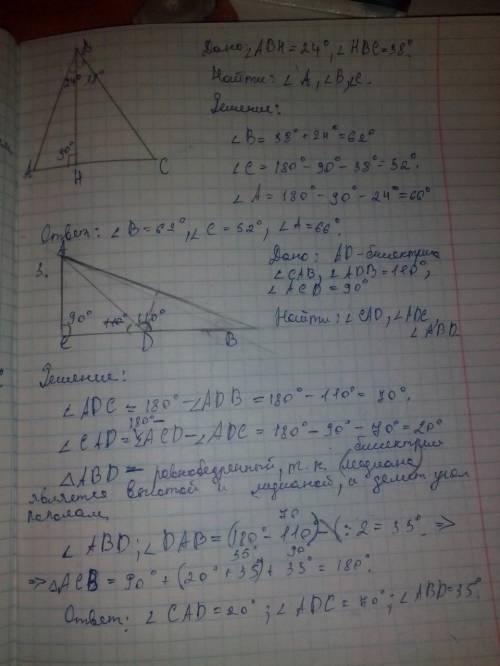 B
24° 38°
90°
A H C
Дано: ∠ABH = 24°, ∠HBC = 38°.
Найти: ∠A, ∠B, ∠C.
Решение:
∠B = 38° + 24° = 62°
∠C = 180° - 90° - 38° = 52°.
∠A = 180° - 90° - 24° = 66°
Ответ: ∠B = 62°, ∠C = 52°, ∠A = 66°.
3.
A
90° 110° 110°
C D B
Дано: AD - биссектриса
∠CAB, ∠ADB = 110°,
∠ACB = 90°
Найти: ∠CAD, ∠ADC,
∠ABD
Решение:
∠ADC = 180° - ∠ADB = 180° - 110° = 70°.
∠CAD = 180° - ∠ACD - ∠ADC = 180° - 90° - 70° = 20°
биссектриса
△ABD - равнобедренный, т.к. (медиана)
является высотой и медианой, и делит угол
пополам
70
∠ABD; ∠DAB = (180° - 110°) : 2 = 35° =>
35° 90°
=> △ACB = 90° + (20° + 35°) + 35° = 180°.
Ответ: ∠CAD = 20°; ∠ADC = 70°; ∠ABD = 35°.